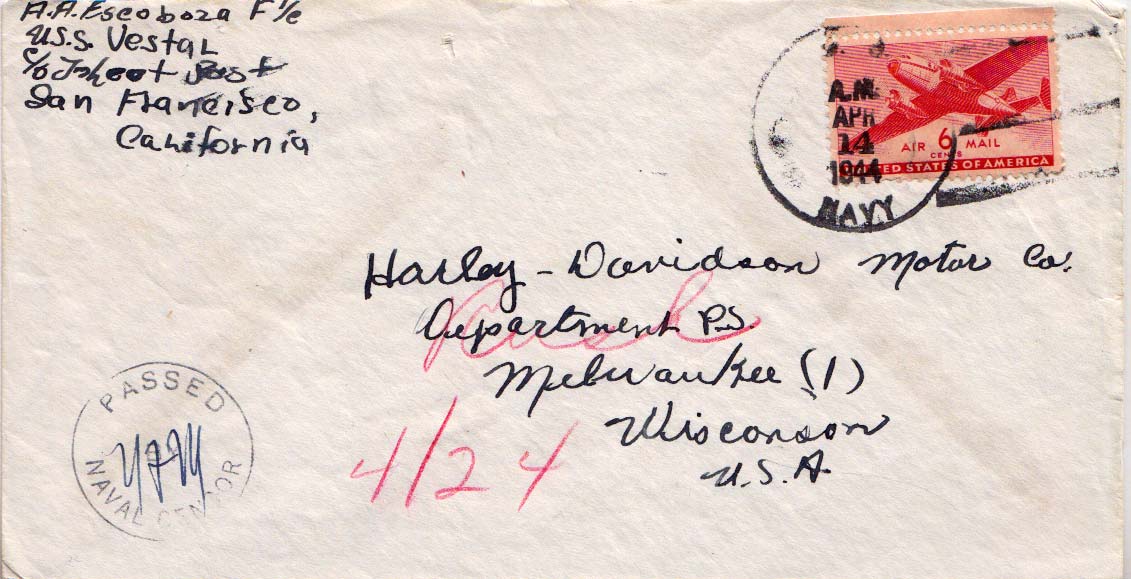 A.A. Escoboza F 1/c
U.S.S. Vestal
c/o Fleet Post
San Francisco,
California
A.M.
APR
14
1944
NAVY
AIR 6 MAIL
CENTS
UNITED STATES OF AMERICA
Harley-Davidson Motor Co.
Department P.S.
Rush
Milwaukee (1)
Wisconson
U.S.A.
4/24
PASSED
NAVAL CENSOR